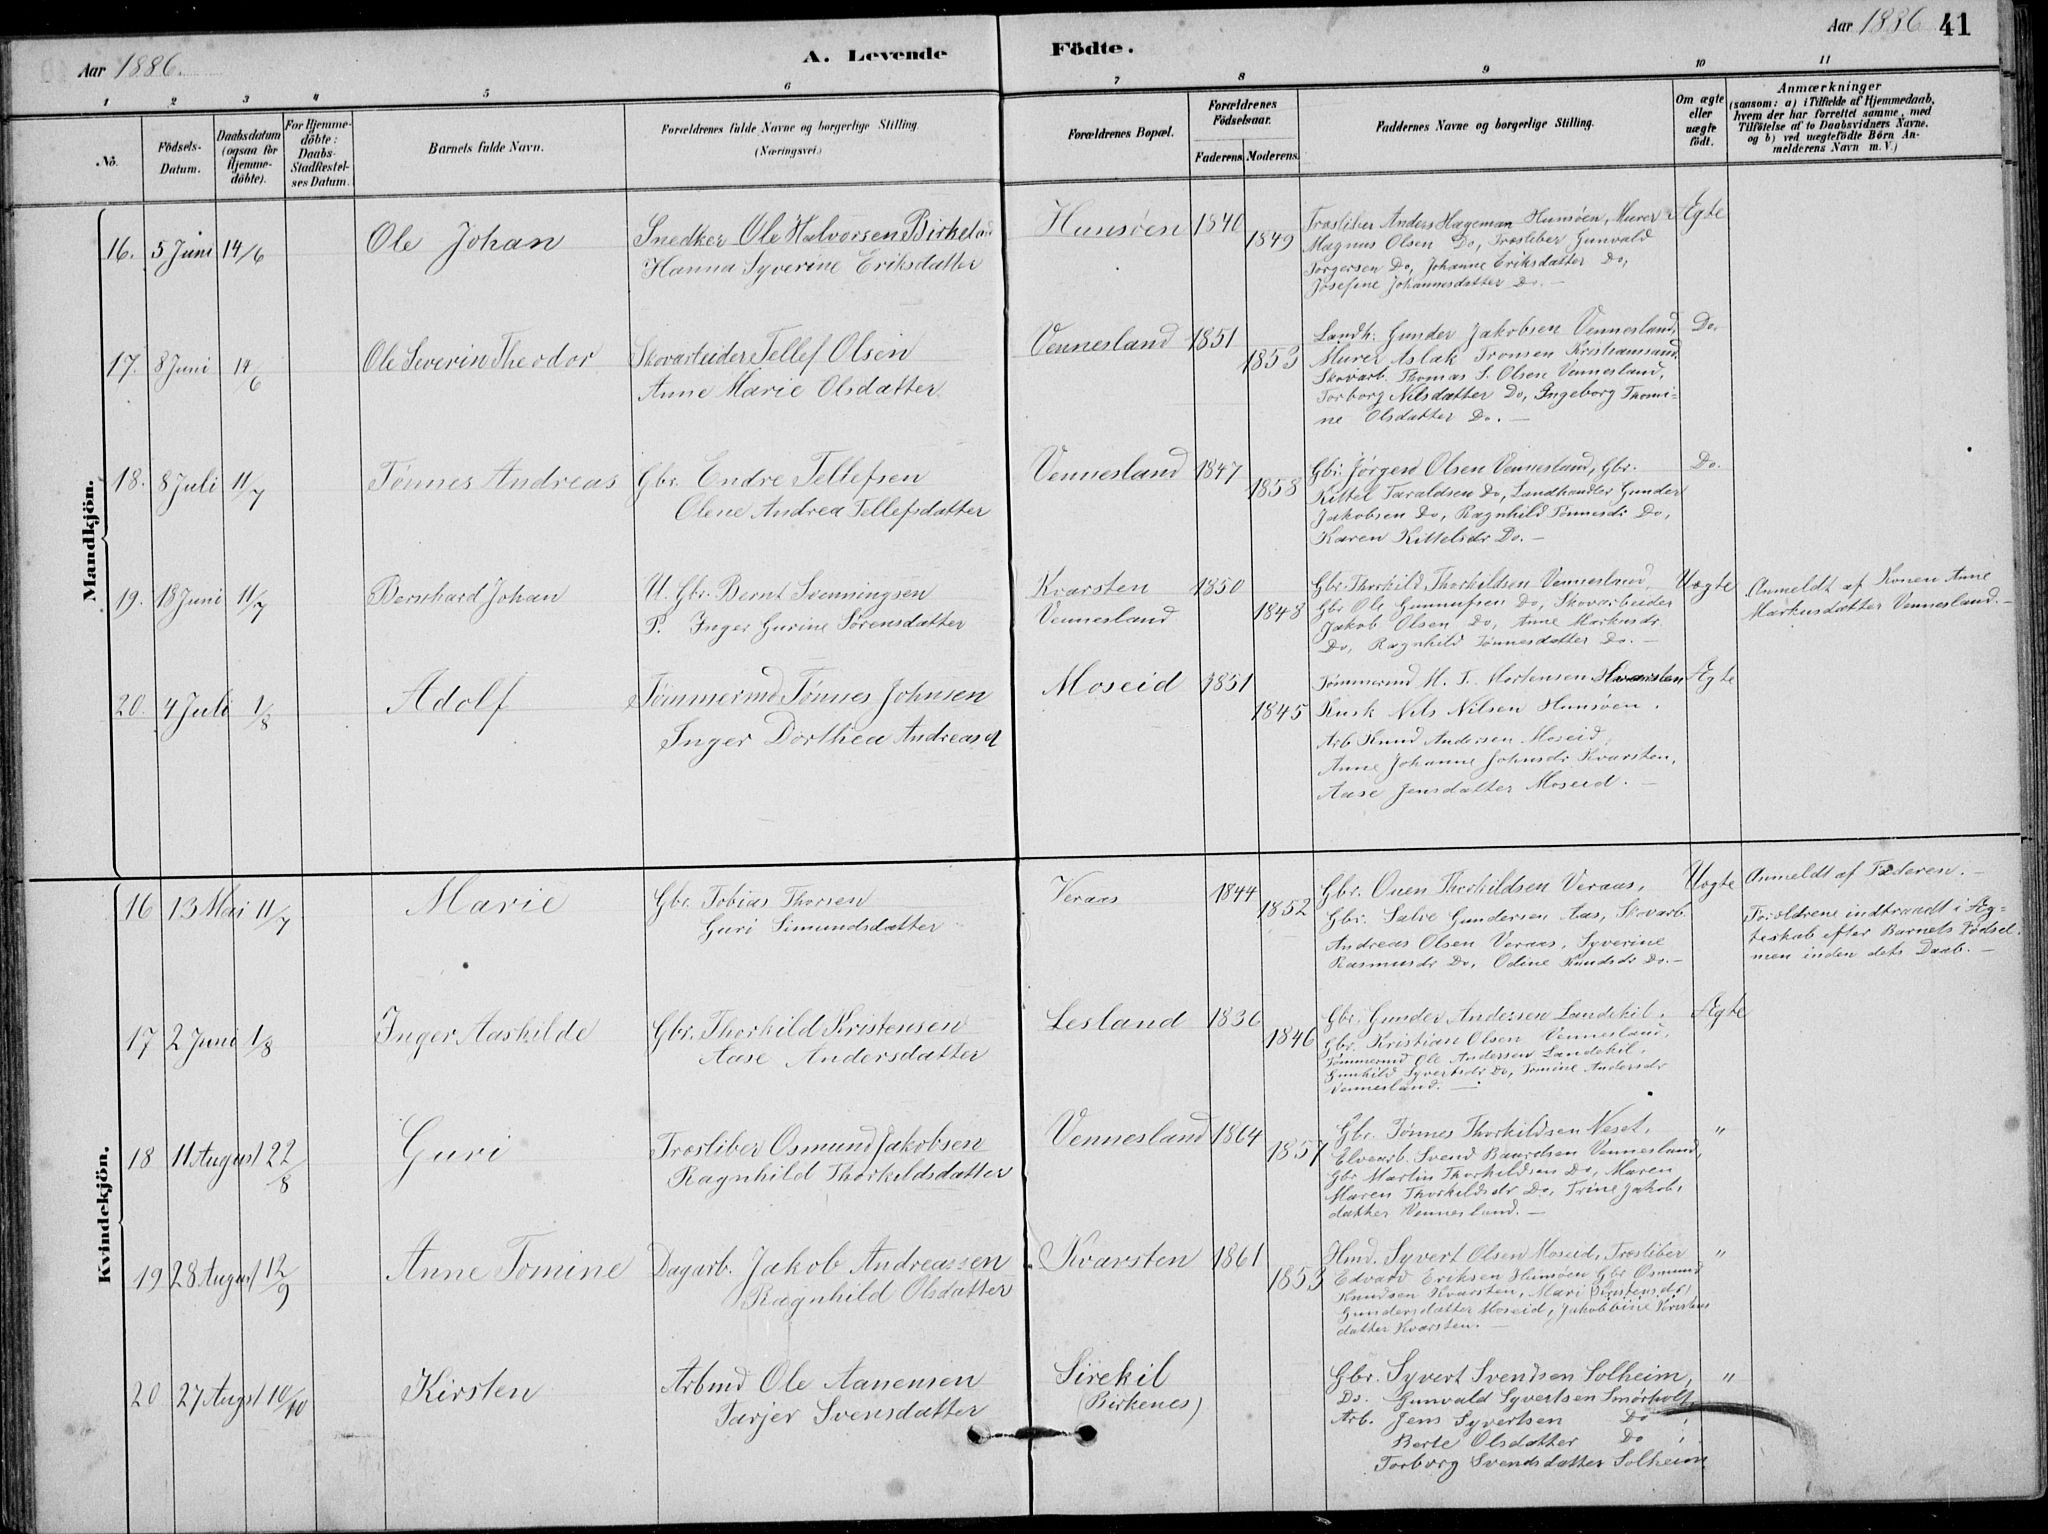 Aar 1886.
A. Levende
Födte.
Aar 1886
41
1 2 3 4 5 6 7 8 9 10 11
No.
Födsels-
Datum.
Daabsdatum
(ogsaa for
Hjemme-
döbte).
For Hjemme-
döbte:
Daabs-
Stadfæstel-
ses Datum.
Barnets fulde Navn.
Forældrenes fulde Navne og borgerlige Stilling
(Næringsvei.)
Forældrenes Bopæl.
Forældrenes
Födselsaar.
Faderens. Moderens.
Faddernes Navne og borgerlige Stilling.
Om ægte
eller
uægte
födt.
Anmærkninger
(saasom: a) i Tilfælde af Hjemmedaab,
hvem der har forrettet samme, med
Tilföielse af to Daabsvidners Navne,
og b) ved uægtefödte Børn An-
melderens Navn m. V.)
Mandkjön.
16. 5 Juni 14/6
Ole Johan
Snedker Ole Halvorsen Birkeland
Hanna Syverine Eriksdatter
Hunsøen 1840
1849
Træsliber Anders Hageman Hunsøen, Murer
Magnus Olsen Do, Træsliber Gunvald
Torgersen Do, Johanne Eriksdatter Do,
Josefine Johannesdatter Do. —
Ægte
17. 8 Juni 14/6
Ole Severin Theodor
Skovarbeider Tellef Olsen
Anne Marie Olsdatter
Vennesland 1851
1853
Landh: Gunder Jakobsen Vennesland,
Murer Aslak Tronsen Kristiansand
Skovarb. Thomas S. Olsen Vennesland,
Torborg Nilsdatter Do, Ingeborg Thomi-
ne Olsdatter Do. —
Do.
18. 8 Juli 11/7
Tønnes Andreas
Gbr. Endre Tellefsen
Olene Andrea Tellefsdatter
Vennesland 1847
1858
Gbr. Jørgen Olsen Vennesland, Gbr.
Kittel Taraldsen Do, Landhandler Gunder
Jakobsen Do, Ragnhild Tønnesdr Do,
Karen Kittelsdr Do. —
Do.
19. 18 Juni 11/7
Bernhard Johan
U. Gbr. Bernt Svenningsen
P. Inger Gurine Sørensdatter
Kvarsten 1850
Vennesland
1848
Gbr. Thorkild Thorkildsen Vennesland,
Gbr Ole Gunnufsen Do, Skovarbeider
Jakob Olsen Do, Anne Markusdr
Do, Ragnhild Tønnesdatter Do. —
Uægte
Anmeldt af Konen Anne
Markusdatter Vennesland. —
20. 4 Juli 1/8
Adolf
Tømmermd Tønnes Johnsen
Inger Dorthea Andreasd
Moseid 1851
1845
Tømmermd M. T. Mortensen Kvarsten
Kusk Nils Nilsen Hunsøen.
Arb Knud Andersen Moseid,
Anne Johanne Johnsdr Kvarsten,
Aase Jensdatter Moseid. —
Ægte
Kvindekjön.
16 13 Mai 11/7
Marie
Gbr. Tobias Thorsen
Guri Simundsdatter
Veraas 1844
1852
Gbr. Ouen Thorkildsen Veraas,
Gbr. Salve Gundersen Aas, Skovarb.
Andreas Olsen Veraas, Syverine
Rasmusdr Do, Odine Knudsdr Do. —
Uægte
Anmeldt af Faderen. —
Forældrene indtraadt i Æg-
teskab efter Barnets Fødsel,
men inden dets Daab. —
17 2 Juni 1/8
Inger Aaskilde
Gbr. Thorkild Kristensen
Aase Andersdatter
Lesland 1836
1846
Gbr. Gunder Andersen Landekil,
Gbr. Kristian Olsen Vennesland,
Tømmermd Ole Andersen Landekil,
Gunhild Syvertsdr Do, Tomine Andersdr
Vennesland. —
Ægte
18 11 August 22/8
Guri
Træsliber Osmund Jakobsen
Ragnhild Thorkildsdatter
Vennesland 1864
1857
Gbr. Tønnes Thorkildsen Neset,
Elvearb. Svend Baardsen Vennesland,
Gbr Martin Thorkildsen Do, Maren
Maren Thorkildsdr Do, Trine Jakob.
datter Vennesland. —
"
19 28 August 12/9
Anne Tomine
Dagarb. Jakob Andreassen
Ragnhild Olsdatter
Kvarsten 1861
1853
Hmd. Syvert Olsen Moseid, Træsliber
Edvard Eriksen Hunsøen Gbr Osmund
Knudsen Kvarsten, Mari
Gundersdatter Moseid, Jakobbine Kristens
datter Kvarsten. —
"
20 27 Augst 10/10
Kirsten
Arbmd Ole Aanensen
Tarjer Svensdatter
Sirekil
(Birkenes)
Gbr. Syvert Svendsen Solheim,
Do. Gunvald Syvertsen Smørholt,
Arb. Jens Syvertsen Do ,
Berte Olsdatter Do ,
Torborg Svendsdatter Solheim
"